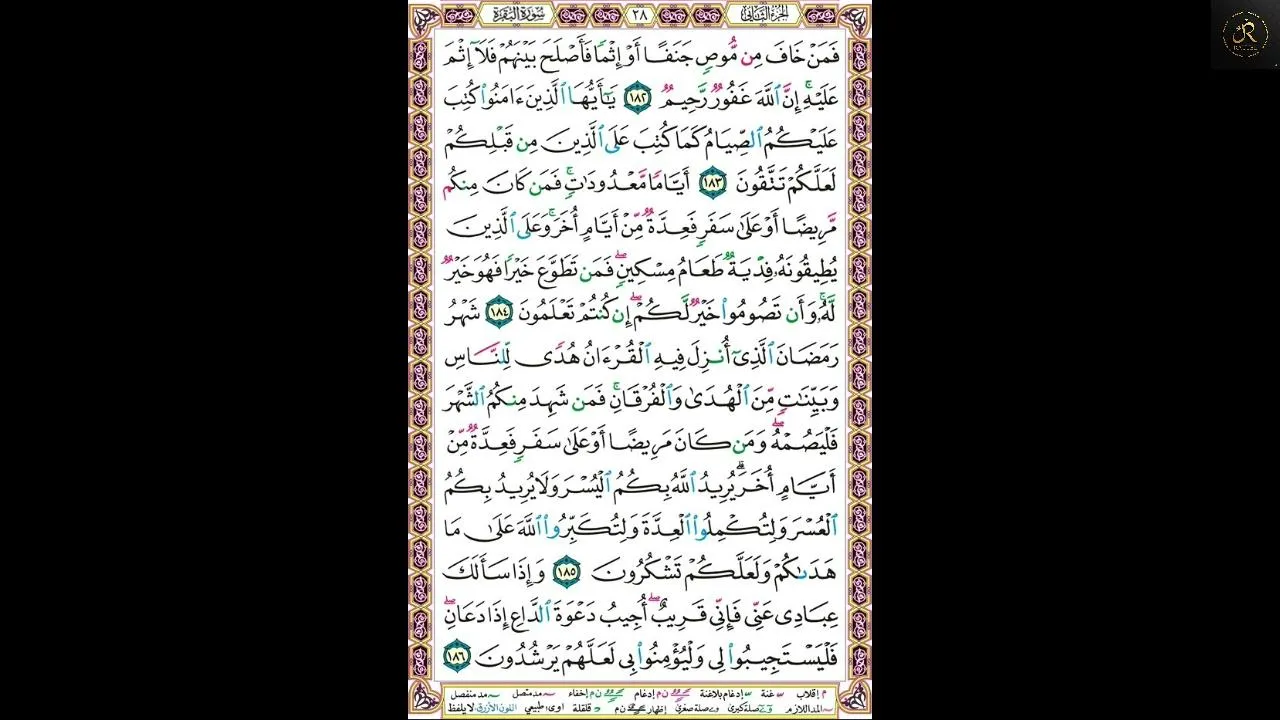 الجزء الثاني ٢٨ سورة البقرة
فَمَنْ خَافَ مِن مُّوصٍ جَنَفًا أَوْ إِثْمًا فَأَصْلَحَ بَيْنَهُمْ فَلَآ إِثْمَ
عَلَيْهِۚ إِنَّ ٱللَّهَ غَفُورٌ رَّحِيمٌ ١٨٢ يَٰٓأَيُّهَا ٱلَّذِينَ ءَامَنُوا۟ كُتِبَ
عَلَيْكُمُ ٱلصِّيَامُ كَمَا كُتِبَ عَلَى ٱلَّذِينَ مِن قَبْلِكُمْ
لَعَلَّكُمْ تَتَّقُونَ ١٨٣ أَيَّامًا مَّعْدُودَٰتٍۚ فَمَن كَانَ مِنكُم
مَّرِيضًا أَوْ عَلَىٰ سَفَرٍ فَعِدَّةٌ مِّنْ أَيَّامٍ أُخَرَۚ وَعَلَى ٱلَّذِينَ
يُطِيقُونَهُۥ فِدْيَةٌ طَعَامُ مِسْكِينٍۖ فَمَن تَطَوَّعَ خَيْرًا فَهُوَ خَيْرٌ
لَّهُۥۚ وَأَن تَصُومُوا۟ خَيْرٌ لَّكُمْۖ إِن كُنتُمْ تَعْلَمُونَ ١٨٤ شَهْرُ
رَمَضَانَ ٱلَّذِىٓ أُنزِلَ فِيهِ ٱلْقُرْءَانُ هُدًى لِّلنَّاسِ
وَبَيِّنَٰتٍ مِّنَ ٱلْهُدَىٰ وَٱلْفُرْقَانِۚ فَمَن شَهِدَ مِنكُمُ ٱلشَّهْرَ
فَلْيَصُمْهُۖ وَمَن كَانَ مَرِيضًا أَوْ عَلَىٰ سَفَرٍ فَعِدَّةٌ مِّنْ
أَيَّامٍ أُخَرَۗ يُرِيدُ ٱللَّهُ بِكُمُ ٱلْيُسْرَ وَلَا يُرِيدُ بِكُمُ
ٱلْعُسْرَ وَلِتُكْمِلُوا۟ ٱلْعِدَّةَ وَلِتُكَبِّرُوا۟ ٱللَّهَ عَلَىٰ مَا
هَدَىٰكُمْ وَلَعَلَّكُمْ تَشْكُرُونَ ١٨٥ وَإِذَا سَأَلَكَ
عِبَادِى عَنِّى فَإِنِّى قَرِيبٌۖ أُجِيبُ دَعْوَةَ ٱلدَّاعِ إِذَا دَعَانِۖ
فَلْيَسْتَجِيبُوا۟ لِى وَلْيُؤْمِنُوا۟ بِى لَعَلَّهُمْ يَرْشُدُونَ ١٨٦
م إقلاب غنة إدغام بلاغنة ن م إدغام ن م إخفاء مد متصل مد منفصل
المد اللازم صلة كبرى صلة صغرى إظهار ن م قلقلة اوى طبيعي اللون الأزرق لا يلفظ